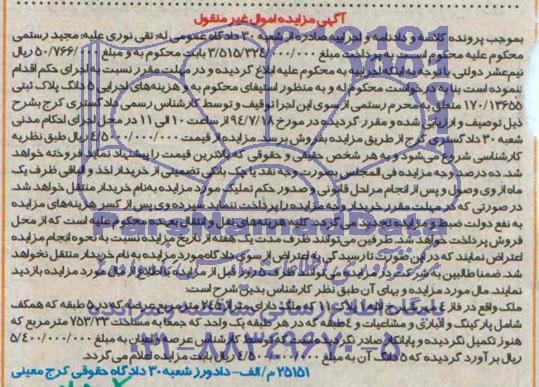 آگهی مزایده اموال غیر منقول
بموجب پرونده کلاسه و دادنامه و اجراییه صادره از شعبه ۳۰ دادگاه عمومی له: تقی نوری علیه: مجید رستمی
محکوم علیه محکوم است به پرداخت مبلغ ۳/۵۱۵/۳۲۴/۰۰۰/۰۰۰ بابت محکوم به و مبلغ ۵۰/۷۶۶/۰۰۰ ریال
نیم عشر دولتی. با توجه به اینکه اجراییه به محکوم علیه ابلاغ گردیده و در مهلت مقرر نسبت به اجرای حکم اقدام
ننموده است بنا به درخواست محکوم له و به منظور استیفای محکوم به و هزینه‌های اجرایی ۵ دانگ پلاک ثبتی
۱۷۰/۱۳۶۵۵ متعلق به محرم رستمی از سوی این اجرا توقیف و توسط کارشناس رسمی دادگستری کرج بشرح
ذیل توصیف و ارزیابی شده و مقرر گردیده در مورخ ۹۴/۷/۱۸ از ساعت ۱۰ الی ۱۱ در محل اجرای احکام مدنی
شعبه ۳۰ دادگستری کرج از طریق مزایده بفروش برسد. مزایده از قیمت ۴/۵۰۰/۰۰۰/۰۰۰ ریال طبق نظریه
کارشناسی شروع می‌شود و به هر شخص حقیقی و حقوقی که بالاترین قیمت را پیشنهاد نماید فروخته خواهد
شد. ده درصد وجه مزایده فی المجلس بصورت وجه نقد یا چک بانکی تضمینی از خریدار اخذ و الباقی ظرف یک
ماه از وی وصول و پس از انجام مراحل قانونی و صدور حکم تملیک مورد مزایده به نام خریدار منتقل خواهد شد.
در صورتی که در مهلت مقرر خریدار وجه مزایده را پرداخت ننماید سپرده وی پس از کسر هزینه‌های مزایده
به نفع دولت ضبط و مزایده تجدید می‌گردد. کلیه هزینه‌های نقل و انتقال بعهده محکوم علیه است که از محل
فروش پرداخت خواهد شد. طرفین می‌توانند ظرف مدت یک هفته از تاریخ مزایده نسبت به نحوه انجام مزایده
اعتراض نمایند که در این صورت تا رسیدگی به اعتراض از سوی دادگاه مورد مزایده به نام خریدار منتقل نخواهد
شد. ضمنا طالبین به شرکت در مزایده می‌توانند ظرف ۵ روز قبل از مزایده با اطلاع از مال مورد مزایده بازدید
نمایند. مال مورد مزایده و بهای آن طبق نظر کارشناس بدین شرح است:
ملک واقع در فاز ۴ مهرشهر کرج پلاک ۱۱ که ملک دارای متراژ ۲۴۵ مترمربع عرصه که در ۵ طبقه که همکف
شامل پارکینگ و انباری و مشاعیات و ۴ طبقه که در هر طبقه یک واحد که جمعا به مساحت ۷۵۳/۳۳ مترمربع که
هنوز تکمیل نگردیده و پایانکار صادر نگردیده است که توسط کارشناس عرصه و اعیان به مبلغ ۵/۴۰۰/۰۰۰/۰۰۰
ریال برآورد گردیده که ۵ دانگ آن به مبلغ ۴/۵۰۰/۰۰۰/۰۰۰ ریال بابت مزایده اعلام می‌گردد.
۲۵۱۵۱ م/الف- دادورز شعبه ۳۰ دادگاه حقوقی کرج معینی
ParsNamadData
پایگاه اطلاع رسانی مناقصه و مزایده
۰۲۱-۸۸۳۴۹۶۷۰-۵